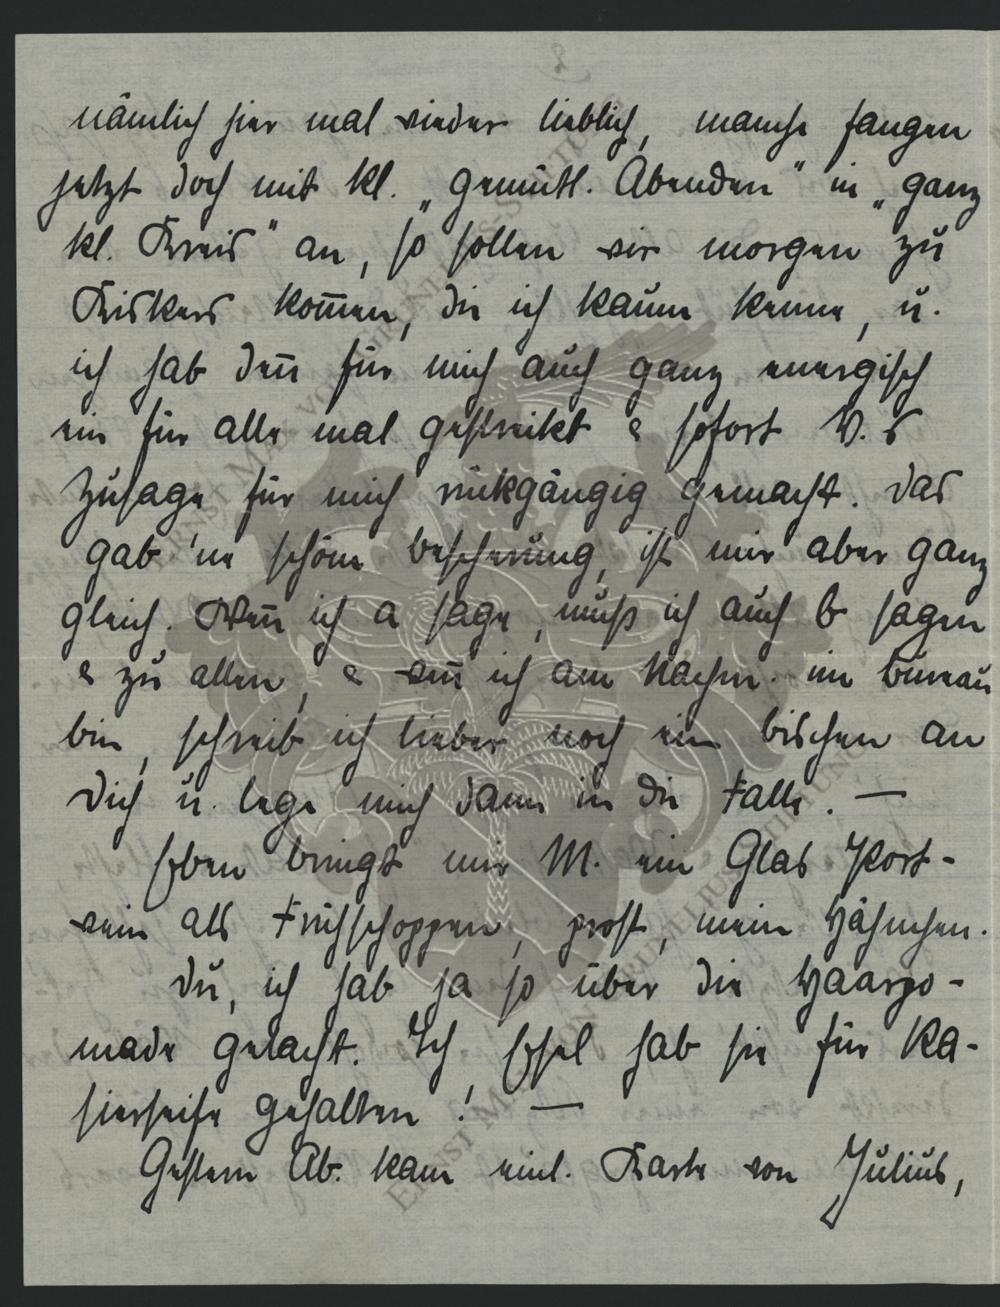 nämlich hier mal wieder lieblich, manche fangen
jetzt doch mit kl. „gemütl. Abenden" in „ganz
kl. Kreis" an, so sollen wir morgen zu
Kiskers kom̄en, die ich kaum kenne, u.
ich hab den̄ für mich auch ganz energisch
ein für alle mal gestreikt & sofort V.s
Zusage für mich rückgängig gemacht. Das
gab 'ne schöne bescherung, ist mir aber ganz
gleich. Wen̄ ich a sage, muß ich auch b sagen
& zu allen, & wen̄ ich am Nachm. im Bureau
bin, schreib ich lieber noch ein bischen an
Dich u. lege mich dann in die Falle. —
Eben bringt mir M. ein Glas Port-
wein als Frühschoppen, prost, mein Hähnchen.
Du, ich hab ja so über die Haarpo-
made gelacht. Ich Esel hab sie für Ra-
sierseife gehalten! —
Gestern Ab. kam einl. Karte von Julius,